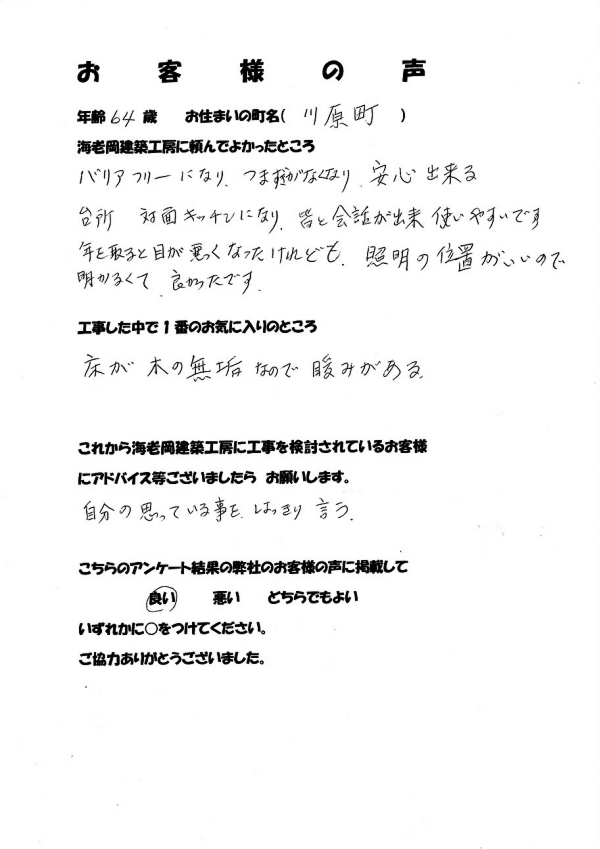 お客様の声
年齢 64 歳 お住まいの町名( 川原町 )
海老岡建築工房に頼んでよかったところ
バリアフリーになり、つまずきがなくなり、安心出来る
台所 対面キッチンになり、皆と会話が出来 使いやすいです
年を取ると目が悪くなったけれども、照明の位置がいいので
明かるくて、良かったです。
工事した中で1番のお気に入りのところ
床が木の無垢なので暖みがある。
これから海老岡建築工房に工事を検討されているお客様
にアドバイス等ございましたら お願いします。
自分の思っている事を、はっきり言う。
こちらのアンケート結果の弊社のお客様の声に掲載して
良い 悪い どちらでもよい
いずれかに○をつけてください。
ご協力ありがとうございました。